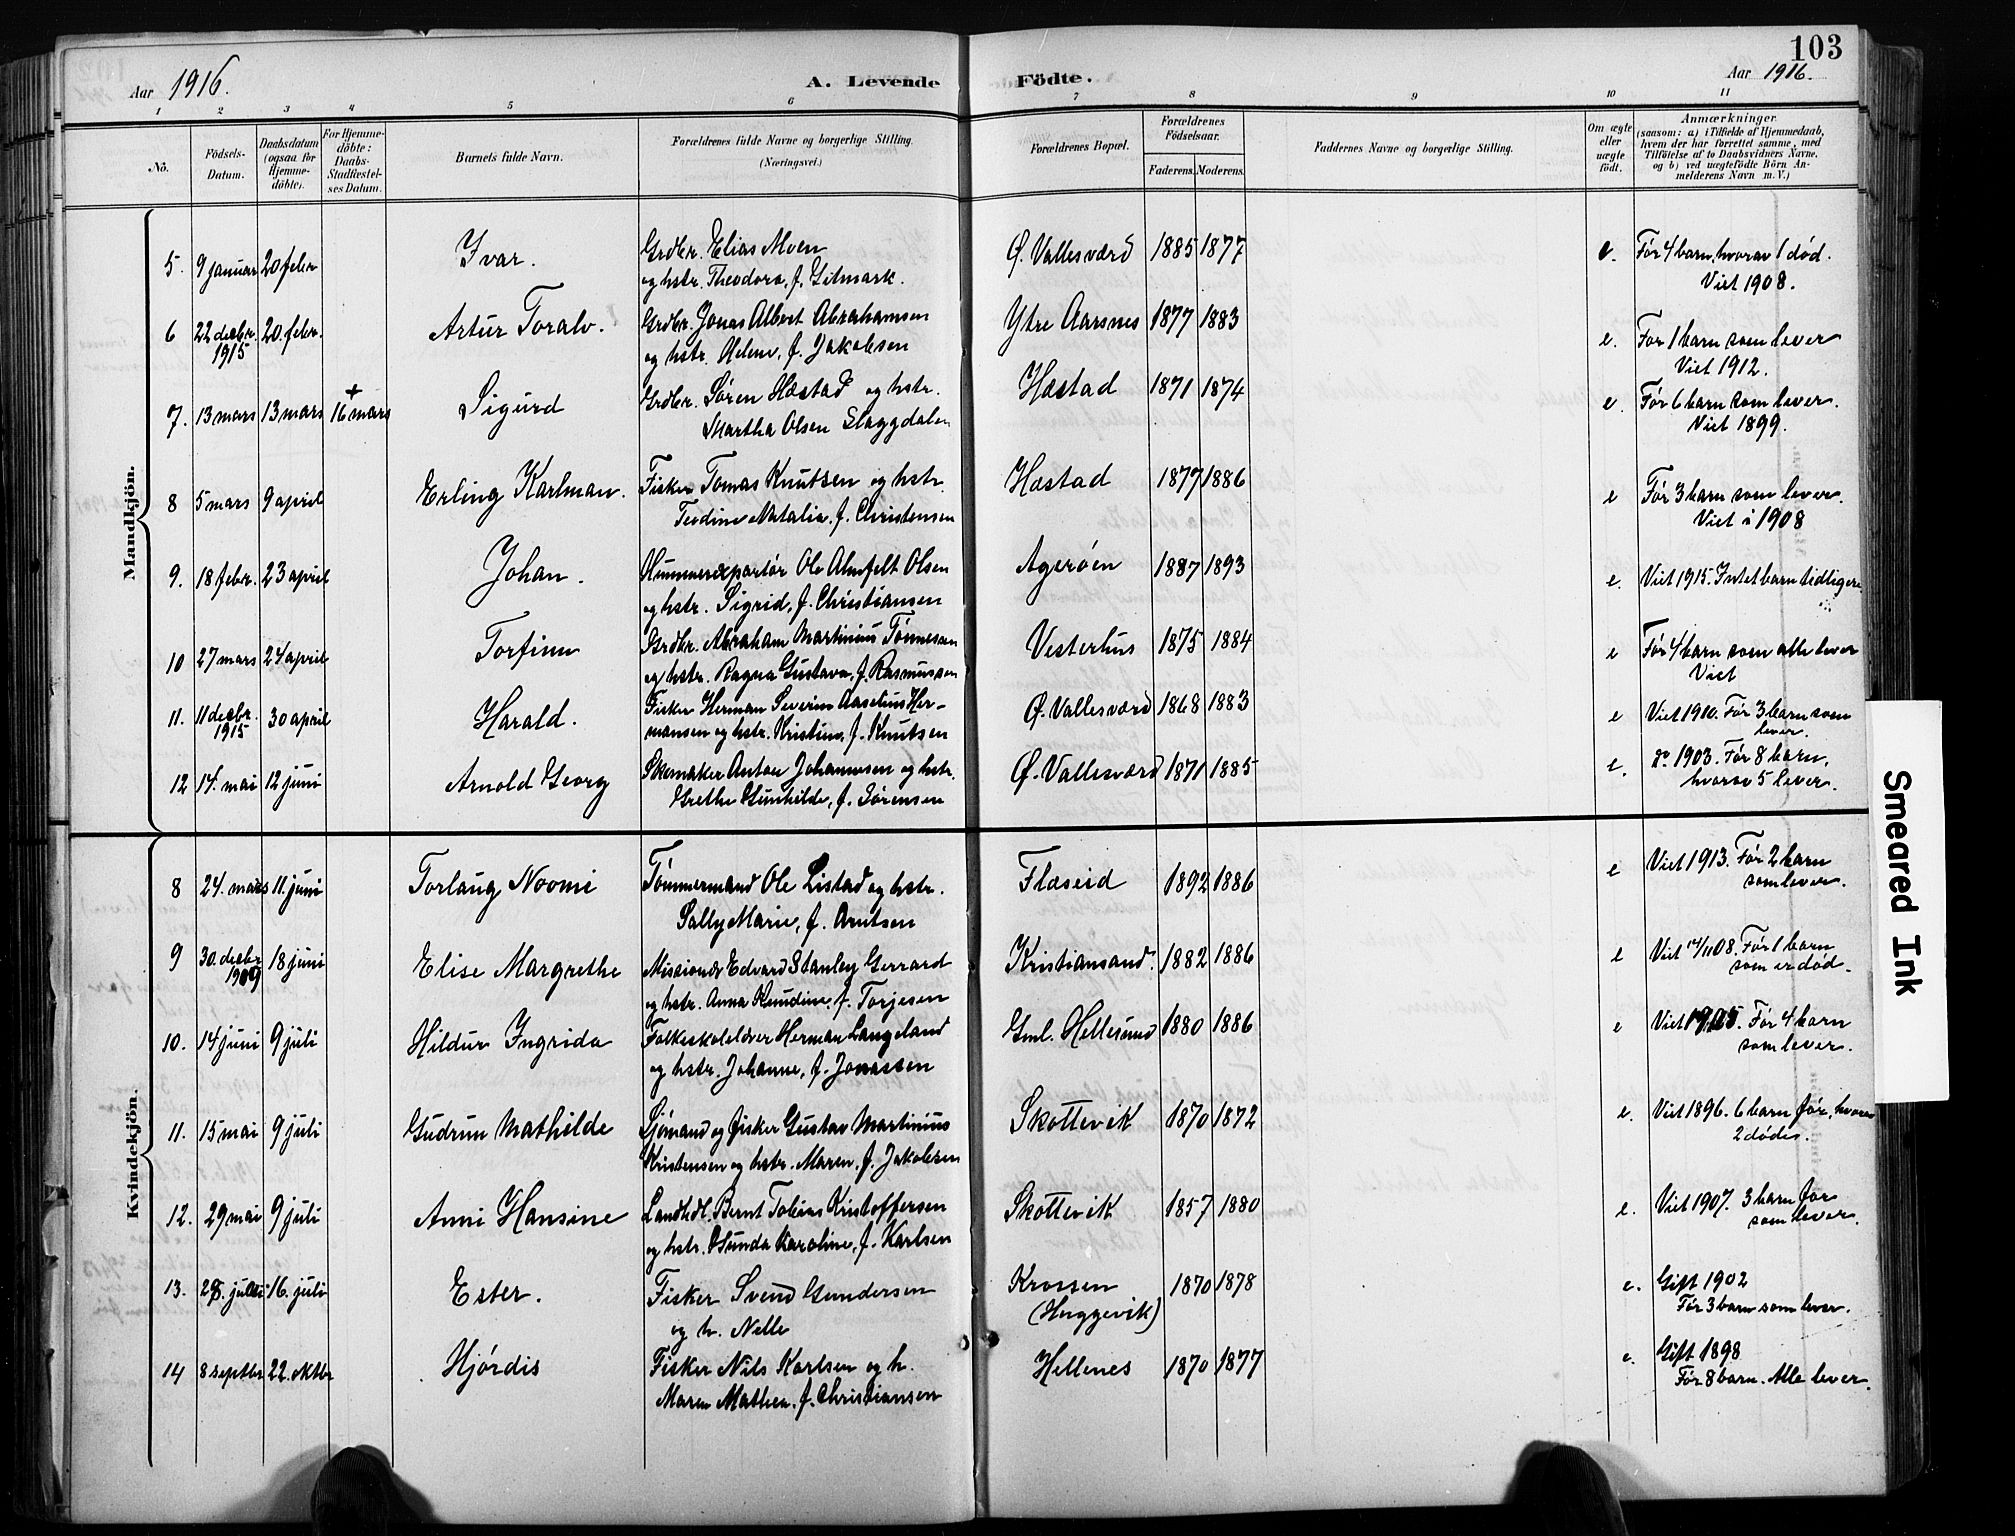 103
Aar 1916. A. Levende Födte. Aar 1916.
1 2 3 4 5 6 7 8 9 10 11
No.
Födsels-
Datum.
Daabsdatum
(ogsaa for
Hjemme-
döbte).
For Hjemme-
döbte:
Daabs-
Stadfæstel-
ses Datum.
Barnets fulde Navn.
Forældrenes fulde Navne og borgerlige Stilling.
(Næringsvei.)
Forældrenes Bopæl.
Forældrenes
Födselsaar.
Faderens. Moderens.
Faddernes Navne og borgerlige Stilling.
Om ægte
eller
uægte
født.
Anmærkninger
(saasom: a) i Tilfælde af Hjemmedaab,
hvem der har forrettet samme, med
Tilføielse af to Daabsvidners Navne,
og b) ved uægtefödte Börn An-
melderens Navn m. V.)
Mandkjön.
5. 9 januar 20 febr Ivar. Grdbr. Elias Moen Ø. Vallesværd 1885 1877 e. Før 4 barn, hvorav 1 død.
og hstr. Theodora, f. Gitmark. Viet 1908.
6 22 decbr. 1915 20. febr. Artur Toralv. Grdbr. Jonas Albert Abrahamsen Ytre Aarsnes 1877 1883 e. Før 1 barn som lever
og hstr. Helene, f. Jakobsen Viet 1912.
7. 13 mars 13 mars + 16 mars Sigurd Grdbr. Søren Hæstad og hstr. Hæstad 1871 1874 e. Før 6 barn som lever.
Martha Olsen Slaggdalen Viet 1899.
8 5 mars 9 april Erling Karlman. Fisker Tomas Knutsen og hstr. Hæstad 1877 1886 e Før 3 barn som lever.
Teodine Natalia f. Christensen Viet i 1908
9. 18 febr. 23 april Johan. Hummerexportør Ole Almfelt Olsen Agerøen 1887 1893 e. Viet 1915. Intet barn tidligere
og hstr. Sigrid, f. Christiansen
10 27 mars 24 april Torfinn Grdbr. Abraham Martinius Tønnessen Vesterhus 1875 1884 e Før 4 barn som alle lever
og hstr. Ragna Gustava, f. Rasmussen Viet
11. 11 decbr. 1915 30 april Harald. Fisker Herman Severin Aaselius Her- Ø. Vallesværd 1868 1883 e Viet 1910. Før 3 barn som
mansen og hstr. Kristine, f. Knutsen lever.
12 14. mai 12 juni Arnold Georg Skomaker Anton Johannesen og hstr. Ø. Vallesværd 1871 1885 e. do 1903. Før 8 barn,
Grethe Gunhilde, f. Sørensen hvorav 5 lever.
Kvindekjön.
8 24. mars 11. juni Torlaug Noomi Tømmermand Ole Listad og hstr. Flaseid 1892 1886 e Viet 1913. Før 2 barn
Sally Marie, f. Arntsen som lever.
9 30. decbr 1909 18 juni Elise Margrethe Missionær Edvard Stanley Gerrard Kristiansand. 1882 1886 e Viet 14/11 08. Før 1 barn
og hstr. Anna Knudine, f. Torjesen som er død.
10. 14 juni 9 juli Hildur Ingrida Folkeskolelærer Herman Langeland Gml. Hellesund 1880 1886 e Viet 1905. Før 4 barn
og hstr. Johanne, f. Jonassen som lever.
11. 15 mai 9 juli Gudrun Mathilde Sjømand og fisker Gustav Martinius Skottevik 1870 1872 e. Viet 1896. 6 barn før, hvorav
Kristensen og hstr. Maren, f. Jakobsen 2 døde.
12. 29 mai 9 juli Anni Hansine Landhdl. Bernt Tobias Kristoffersen Skottevik 1857 1880 e. Viet 1907. 3 barn før
og hstr. Gunda Karoline, f. Karlsen som lever.
13. 16. juli Ester. Fisker Svend Gundersen Krossen 1870 1878 e. Gift 1902
og h. Nelle (Høggevik) Før 3 barn som lever.
14 8 septbr 22. oktbr Hjørdis Fisker Nils Karlsen og h. Hellenes 1870 1877 e. Gift 1898
Maren Mathea. f. Christiansen Før 8 barn. Alle lever.
Smeared Ink